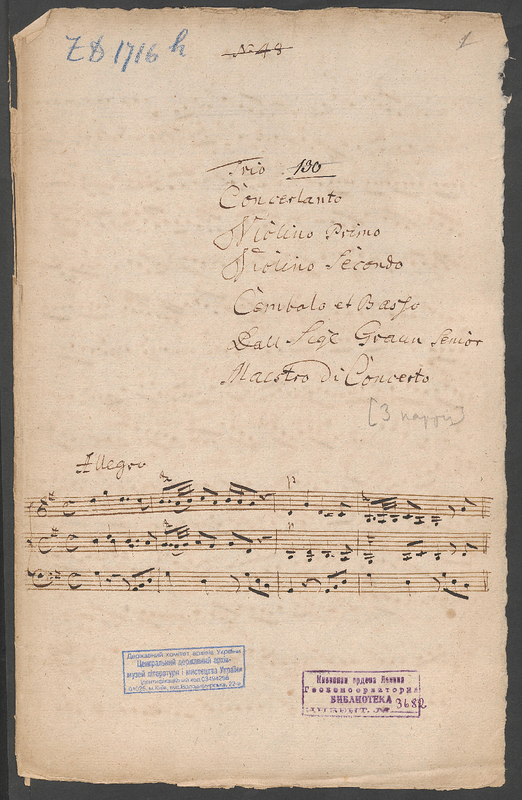 ZD 1716 k
№ 48
1
Trio 130
Concertanto
Violino Primo
Violino Secondo
Cembalo et Basso
Dall Sigr Graun Senior
Maestro Di Concerto
Allegro
Державний комітет архівів України
Центральний державний архів-
музей літератури і мистецтва України
Киевская ордена Ленина
Госконсерватория
БИБЛИОТЕКА
3682